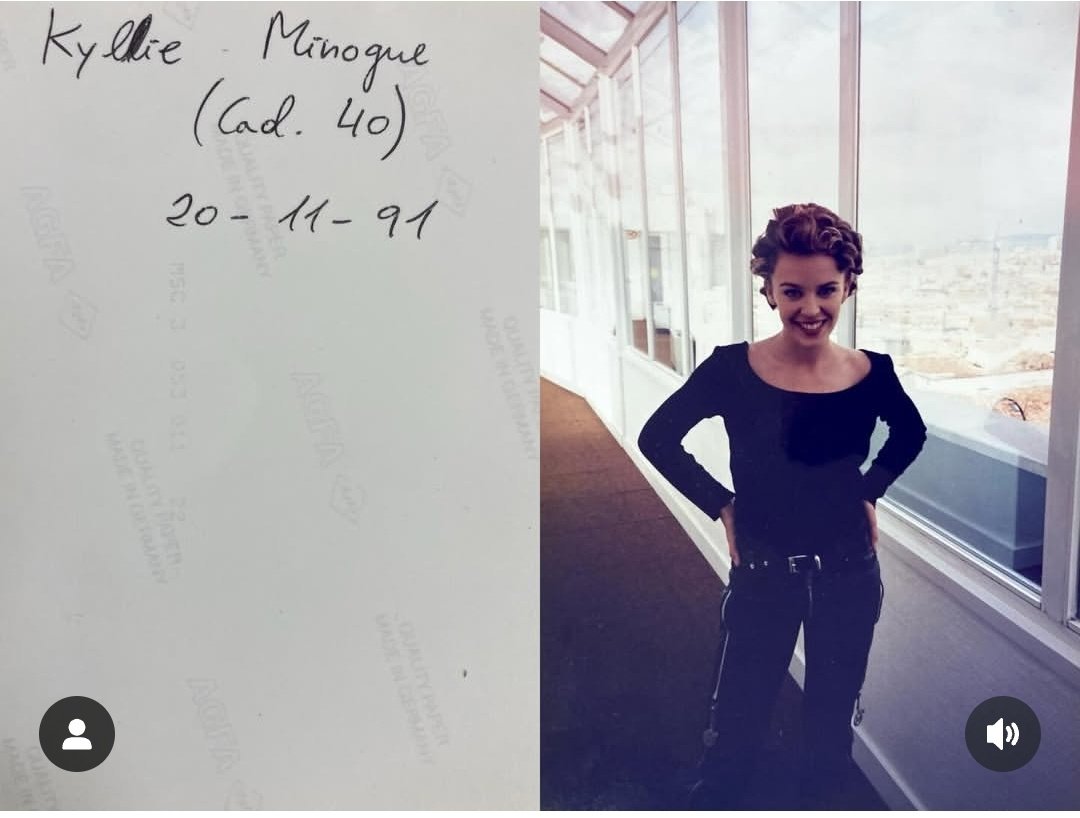 Kylie Minogue
(Cad. 40)
20-11-91
AGFA
QUALITY PAPER
MADE IN GERMANY
AGFA
QUALITY PAPER
MADE IN GERMANY
AGFA
QUALITY PAPER
MADE IN GERMANY
QUALITY PAPER
MADE IN GERMANY
AGFA